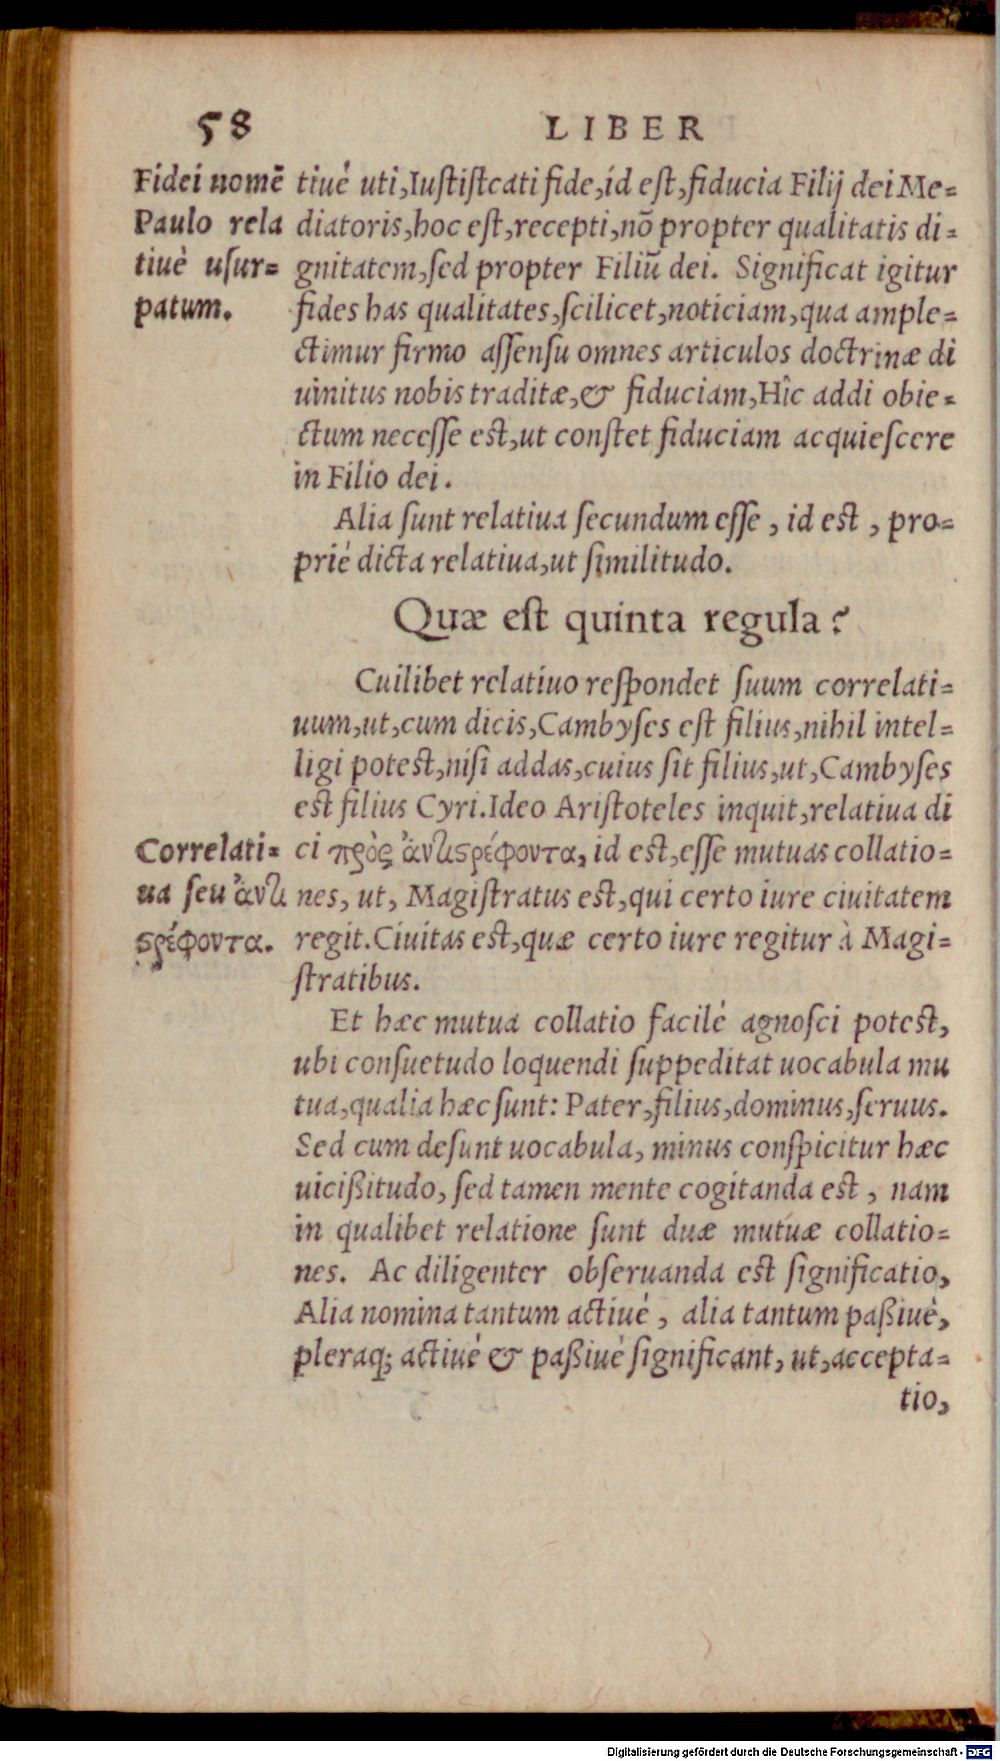 58 LIBER
Fidei nomē
Paulo rela
tiuè uſur=
patum.
tiuè uti, Iuſtiſtcati fide, id eſt, fiducia Filij dei Me=
diatoris, hoc eſt, recepti, nō propter qualitatis di=
gnitatem, ſed propter Filiū dei. Significat igitur
fides has qualitates, ſcilicet, noticiam, qua ample=
ctimur firmo aſſenſu omnes articulos doctrinæ di
uinitus nobis traditæ, & fiduciam, Hîc addi obie=
ctum neceſſe eſt, ut conſtet fiduciam acquieſcere
in Filio dei.
Alia ſunt relatiua ſecundum eſſe, id eſt, pro=
priè dicta relatiua, ut ſimilitudo.
Quæ eſt quinta regula?
Cuilibet relatiuo reſpondet ſuum correlati=
uum, ut, cum dicis, Cambyſes eſt filius, nihil intel=
ligi poteſt, niſi addas, cuius ſit filius, ut, Cambyſes
eſt filius Cyri. Ideo Ariſtoteles inquit, relatiua di
Correlati=
ua ſeu ἀντι
ϛρέφοντα.
ci πρὸς ἀντιϛρέφοντα, id eſt, eſſe mutuas collatio=
nes, ut, Magiſtratus eſt, qui certo iure ciuitatem
regit. Ciuitas eſt, quæ certo iure regitur à Magi=
ſtratibus.
Et hæc mutua collatio facilè agnoſci poteſt,
ubi conſuetudo loquendi ſuppeditat uocabula mu
tua, qualia hæc ſunt: Pater, filius, dominus, ſeruus.
Sed cum deſunt uocabula, minus conſpicitur hæc
uicißitudo, ſed tamen mente cogitanda eſt, nam
in qualibet relatione ſunt duæ mutuæ collatio=
nes. Ac diligenter obſeruanda eſt ſignificatio,
Alia nomina tantum actiuè, alia tantum paßiuè,
pleraq; actiuè & paßiuè ſignificant, ut, accepta=
tio,
Digitalisierung gefördert durch die Deutsche Forschungsgemeinschaft - DFG